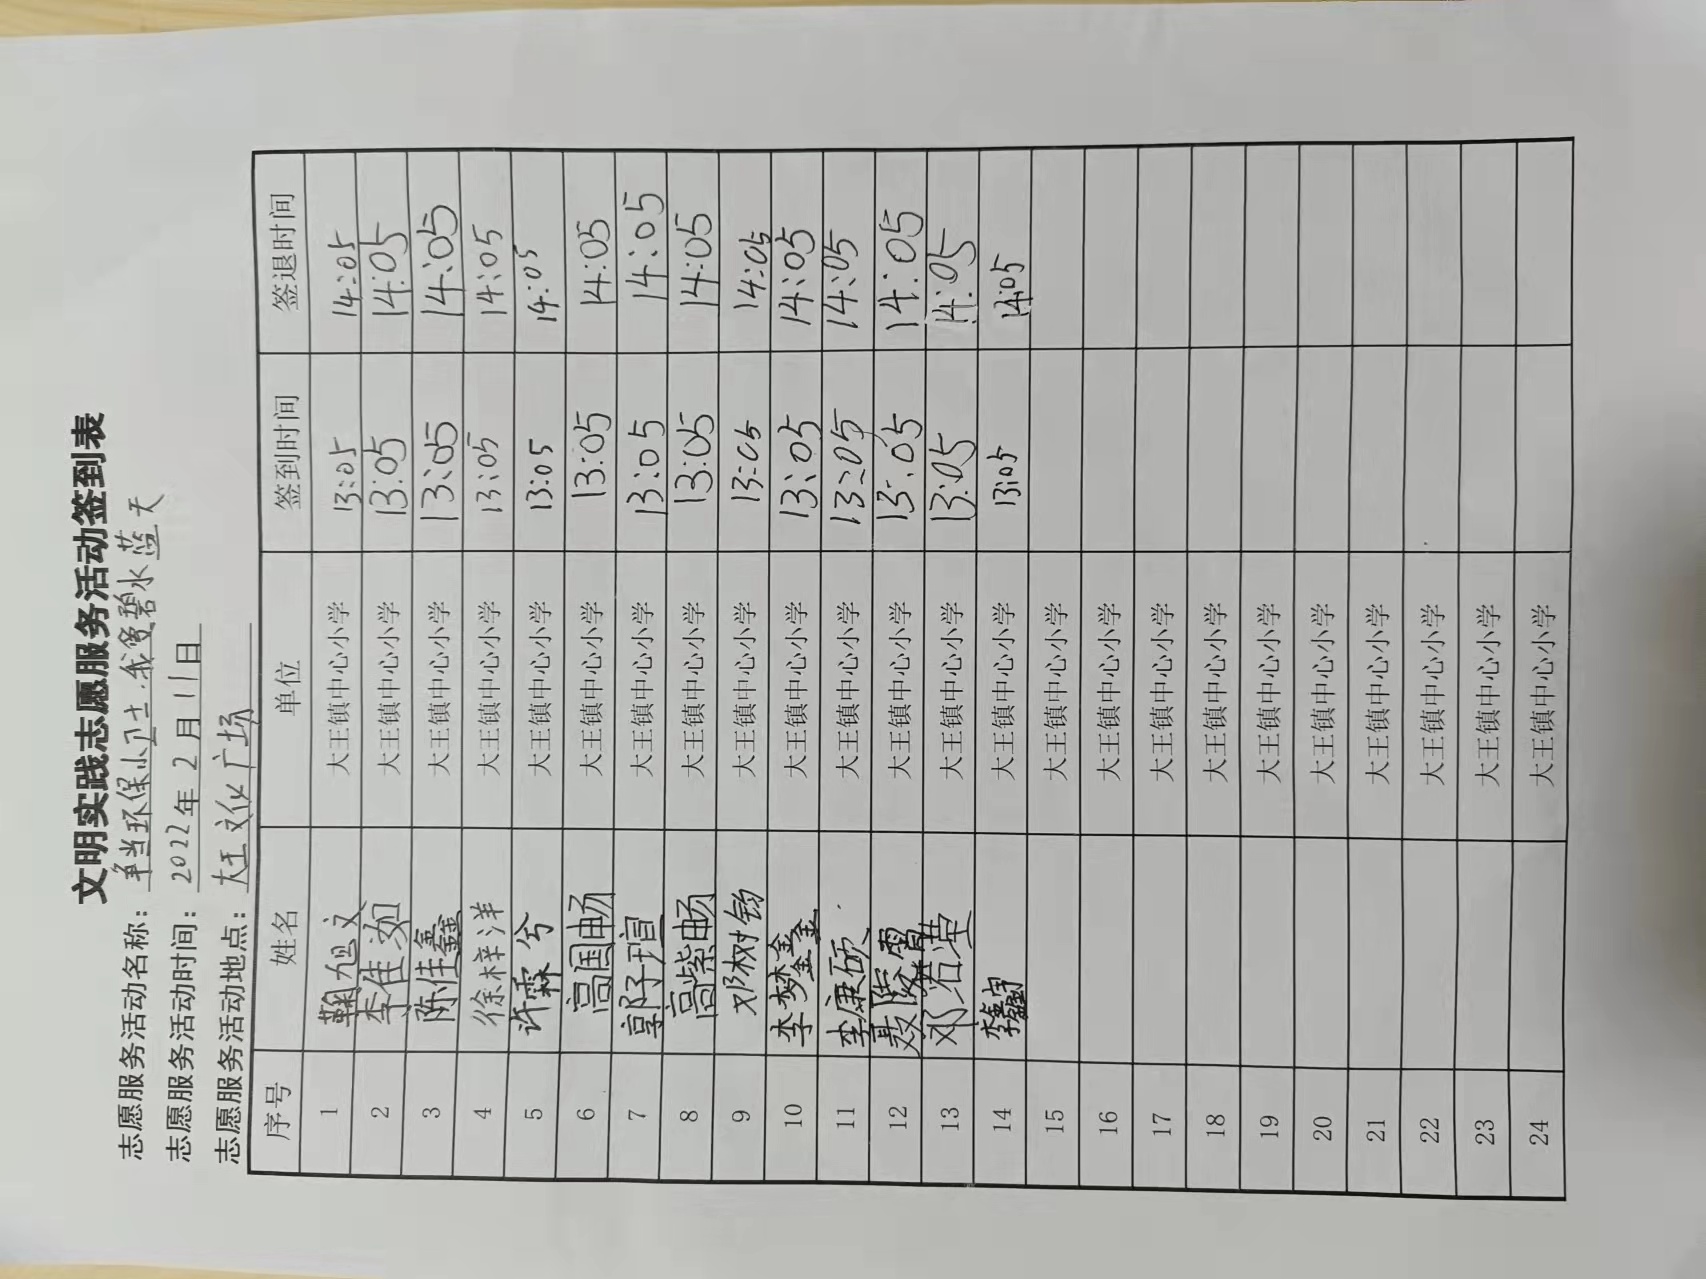 文明实践志愿服务活动签到表
志愿服务活动名称：争当环保小卫士,我爱碧水蓝天
志愿服务活动时间：2022年2月11日
志愿服务活动地点：大王文化广场
序号 姓名 单位 签到时间 签退时间
1 鞠旭文 大王镇中心小学 13:05 14:05
2 李佳汝 大王镇中心小学 13:05 14:05
3 陈佳鑫 大王镇中心小学 13:05 14:05
4 徐梓洋 大王镇中心小学 13:05 14:05
5 许霖兮 大王镇中心小学 13:05 14:05
6 高国畅 大王镇中心小学 13:05 14:05
7 郭子瑄 大王镇中心小学 13:05 14:05
8 高紫畅 大王镇中心小学 13:05 14:05
9 邓树钧 大王镇中心小学 13:05 14:05
10 李梦鑫 大王镇中心小学 13:05 14:05
11 李康硕 大王镇中心小学 13:05 14:05
12 聂 大王镇中心小学 13:05 14:05
13 邓浩 大王镇中心小学 13:05 14:05
14 李鑫宇 大王镇中心小学 13:05 14:05
15 大王镇中心小学
16 大王镇中心小学
17 大王镇中心小学
18 大王镇中心小学
19 大王镇中心小学
20 大王镇中心小学
21 大王镇中心小学
22 大王镇中心小学
23 大王镇中心小学
24 大王镇中心小学